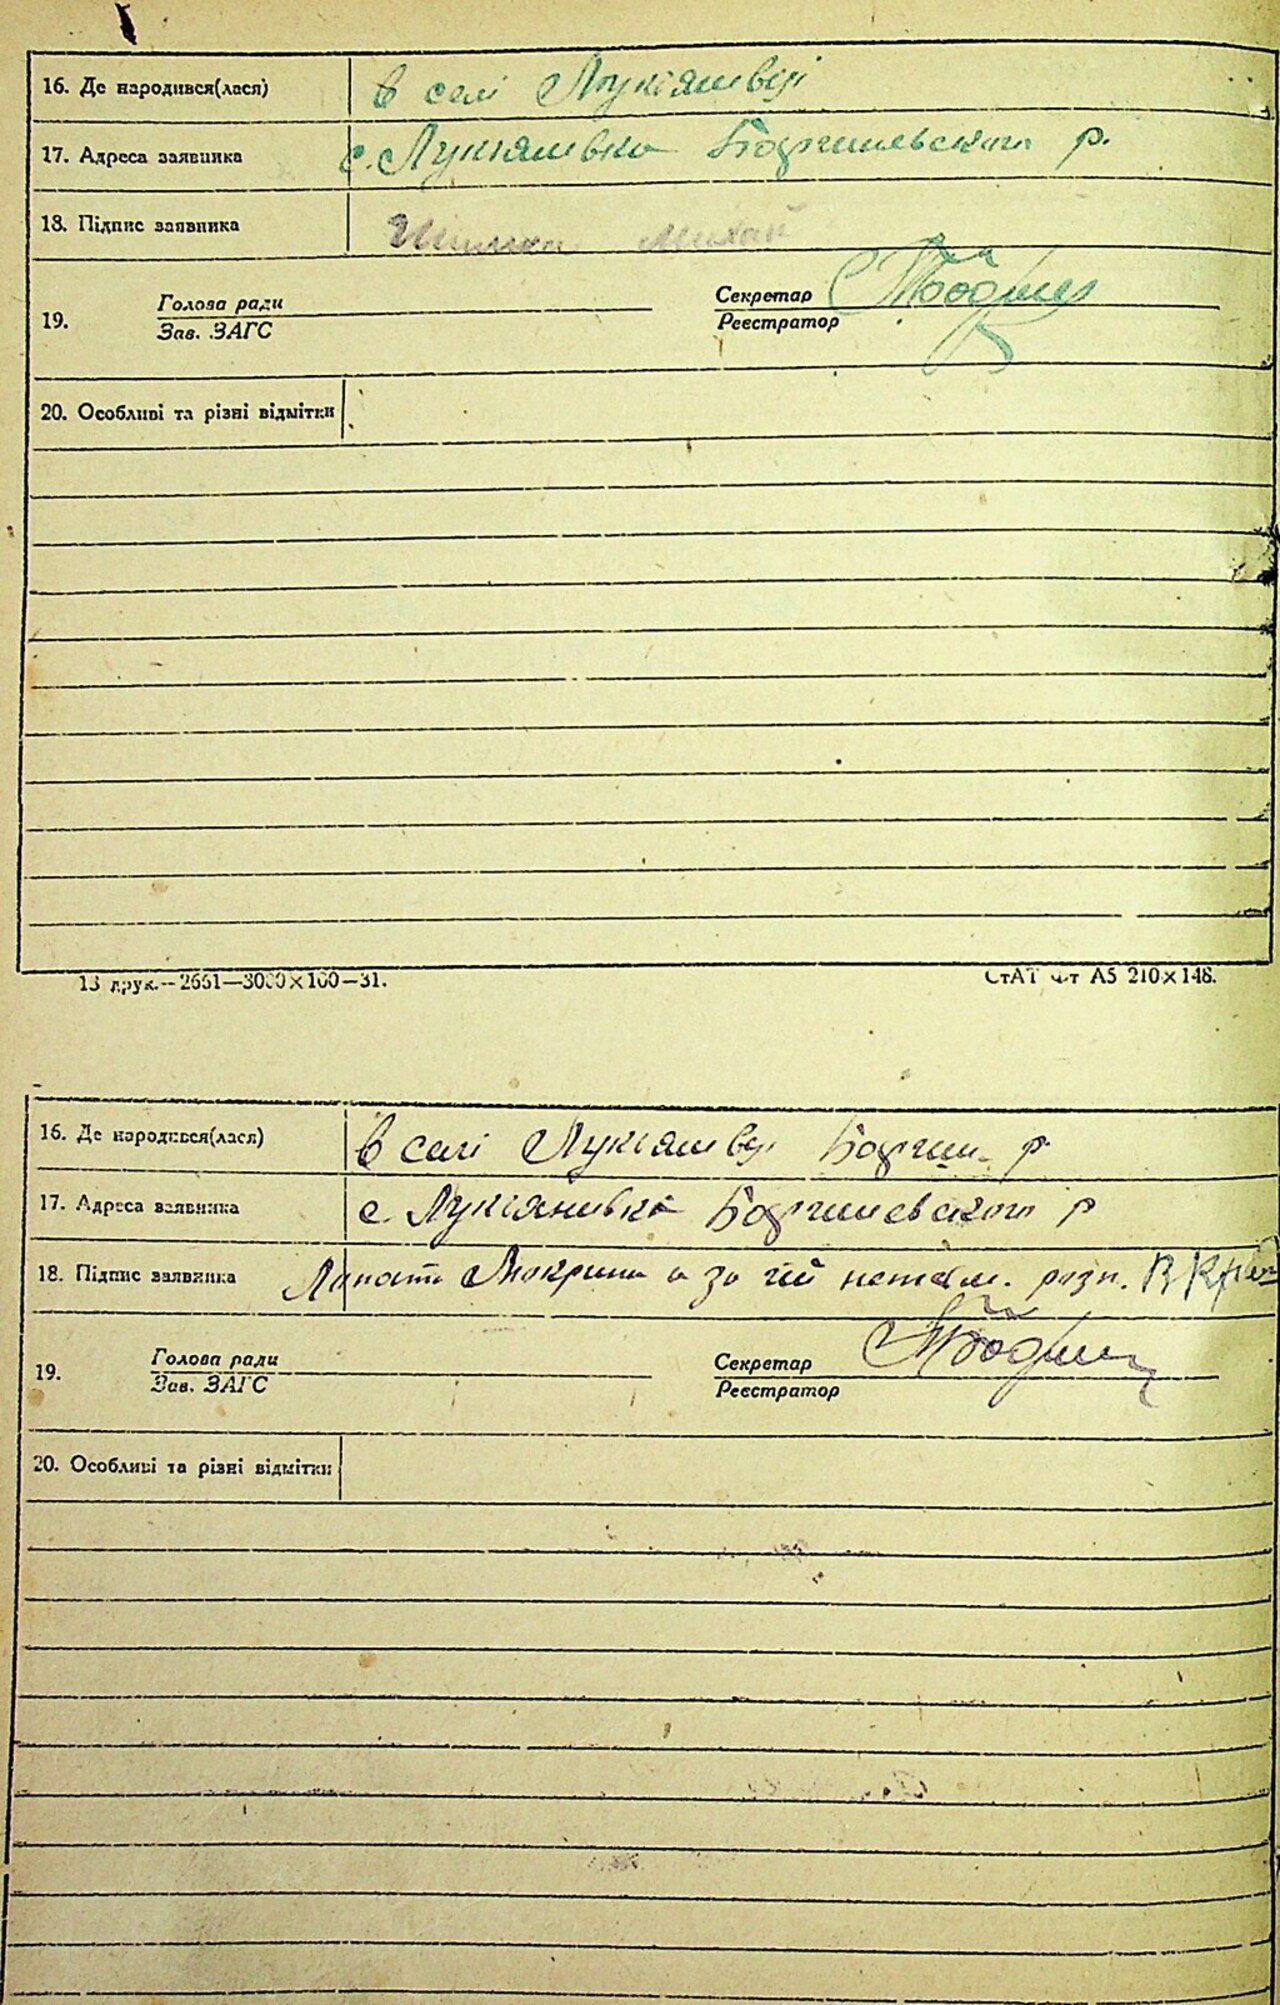 16. Де народився(лася) в селі Лукіянівці
17. Адреса заявника с. Лукіянівка Баришевського р.
18. Підпис заявника Михай
19. Голова ради Секретар
Зав. ЗАГС Реєстратор
20. Особливі та різні відмітки
13 друк.—2651—3000×100—31. СтАТ Фт А5 210×148.
16. Де народився(лася) в селі Лукіянівці Бориш. р.
17. Адреса заявника с. Лукіянівка Баришевського р
18. Підпис заявника Мокрина а за неї розп.
19. Голова ради Секретар
Зав. ЗАГС Реєстратор
20. Особливі та різні відмітки